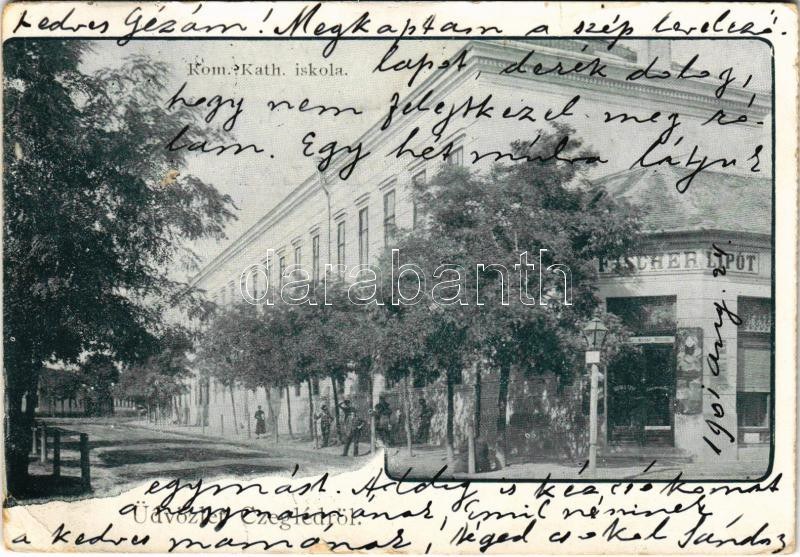 Kedves Gézám! Megkaptam a szép levelező-
Rom. Kath. iskola.
lapot, derék dolog,
hogy nem felejtkezel meg ró-
lam. Egy hét múlva látjuk
FISCHER LIPÓT
darabanth.com
1901 aug. 21.
egymást. Addig is kézcsókomat
a nagymamának, Emil néninek
Üdvözlet Czeglédről.
a kedves mamának, téged csókol Sándor